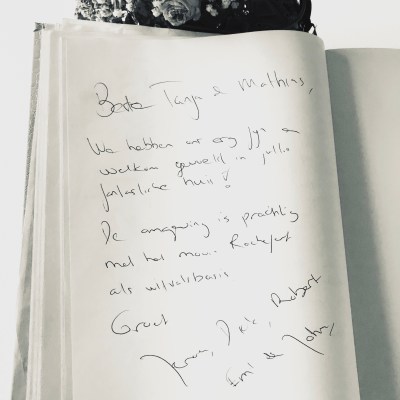 Beste Tanja & Mathias,
We hebben ons erg fijn en
welkom gevoeld in jullie
fantastische huis!
De omgeving is prachtig
met het mooie Rochefort
als uitvalsbasis
Groet
Jeroen, Dirk, Robert
Emi & John,